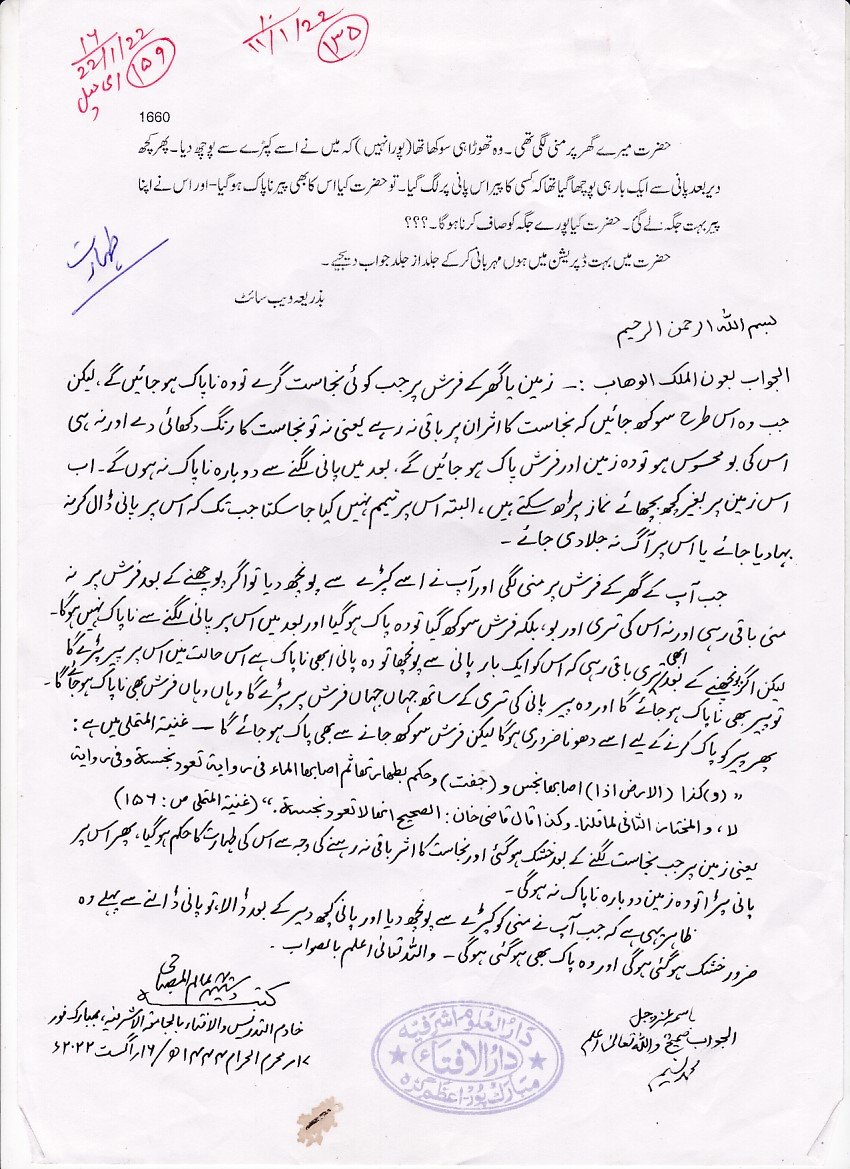 ۱۶
22/1/22
۱۵۹
ای میل
۱۰
11/1/22
۱۳۵
1660
حضرت میرے گھر پر منی لگی تھی۔ وہ تھوڑا ہی سوکھا تھا (پورا نہیں) کہ میں نے اسے کپڑے سے پوچھ دیا۔ پھر کچھ
دیر بعد پانی سے ایک بار ہی پوچھا گیا تھا کہ کسی کا پیر اس پانی پر لگ گیا۔ تو حضرت کیا اس کا بھی پیر ناپاک ہو گیا- اور اس نے اپنا
پیر بہت جگہ لے گئ۔ حضرت کیا پورے جگہ کو صاف کرنا ہوگا۔؟؟؟
حضرت میں بہت ڈپریشن میں ہوں مہربانی کرکے جلد از جلد جواب دیجیے۔
طہارت
بذریعہ ویب سائٹ
بسم اللہ الرحمن الرحیم
الجواب بعون الملک الوھاب :۔ زمین یا گھر کے فرش پر جب کوئی نجاست گرے تو وہ ناپاک ہو جائیں گے، لیکن
جب وہ اس طرح سوکھ جائیں کہ نجاست کا اثر ان پر باقی نہ رہے یعنی نہ تو نجاست کا رنگ دکھائی دے اور نہ ہی
اس کی بو محسوس ہو تو وہ زمین اور فرش پاک ہو جائیں گے، بعد میں پانی لگنے سے دوبارہ ناپاک نہ ہوں گے۔ اب
اس زمین پر بغیر کچھ بچھائے نماز پڑھ سکتے ہیں، البتہ اس پر تیمم نہیں کیا جا سکتا جب تک کہ اس پر پانی ڈال کر نہ
بہا دیا جائے یا اس پر آگ نہ جلا دی جائے۔
جب آپ کے گھر کے فرش پر منی لگی اور آپ نے اسے کپڑے سے پونچھ دیا تو اگر پوچھنے کے بعد فرش پر نہ
منی باقی رہی اور نہ اس کی تری اور بو، بلکہ فرش سوکھ گیا تو وہ پاک ہو گیا اور بعد میں اس پر پانی لگنے سے ناپاک نہیں ہوگا۔
لیکن اگر پونچھنے کے بعد ابھی تری باقی رہی کہ اس کو ایک بار پانی سے پونچھا تو وہ پانی ابھی ناپاک ہے اس حالت میں اس پر پیر پڑے گا
تو پیر بھی ناپاک ہو جائے گا اور وہ پیر پانی کی تری کے ساتھ جہاں جہاں فرش پر پڑے گا وہاں وہاں فرش بھی ناپاک ہو جائے گا۔
پھر پیر کو پاک کرنے کے لیے اسے دھونا ضروری ہوگا لیکن فرش سوکھ جانے سے بھی پاک ہو جائے گا — غنیۃ المتملی میں ہے:
”(و) کذا (الارض اذا) اصابھا نجس و (جفت) وحکم بطھارتھا ثم اصابھا الماء فی روایۃ تعود نجسۃ وفی روایۃ
لا، والمختار الثانی لما قلنا۔ وکذا قال قاضی خان: الصحیح انھا لا تعود نجسۃ۔“ (غنیۃ المتملی ص: ۱۵۶)
یعنی زمین پر جب نجاست لگنے کے بعد خشک ہو گئی اور نجاست کا اثر باقی نہ رہنے کی وجہ سے اس کی طہارت کا حکم ہو گیا، پھر اس پر
پانی پڑا تو وہ زمین دوبارہ ناپاک نہ ہوگی۔
ظاہر یہی ہے کہ جب آپ نے منی کو کپڑے سے پونچھ دیا اور پانی کچھ دیر کے بعد ڈالا، تو پانی ڈالنے سے پہلے وہ
ضرور خشک ہو گئی ہوگی اور وہ پاک بھی ہو گئی ہوگی۔ واللہ تعالیٰ اعلم بالصواب۔
عالم المصباحی
کتبہ
خادم التدریس والافتاء بالجامعۃ الاشرفیہ، مبارک فور
۱۷/ محرم الحرام ۱۴۴۴ھ / ۱۶/ اگست ۲۰۲۲ء
باسمہ عزوجل
الجواب صحیح واللہ تعالیٰ اعلم
محمد نسیم
دارالعلوم اشرفیہ
دارالافتاء
مبارک پور۔ اعظم گڑھ